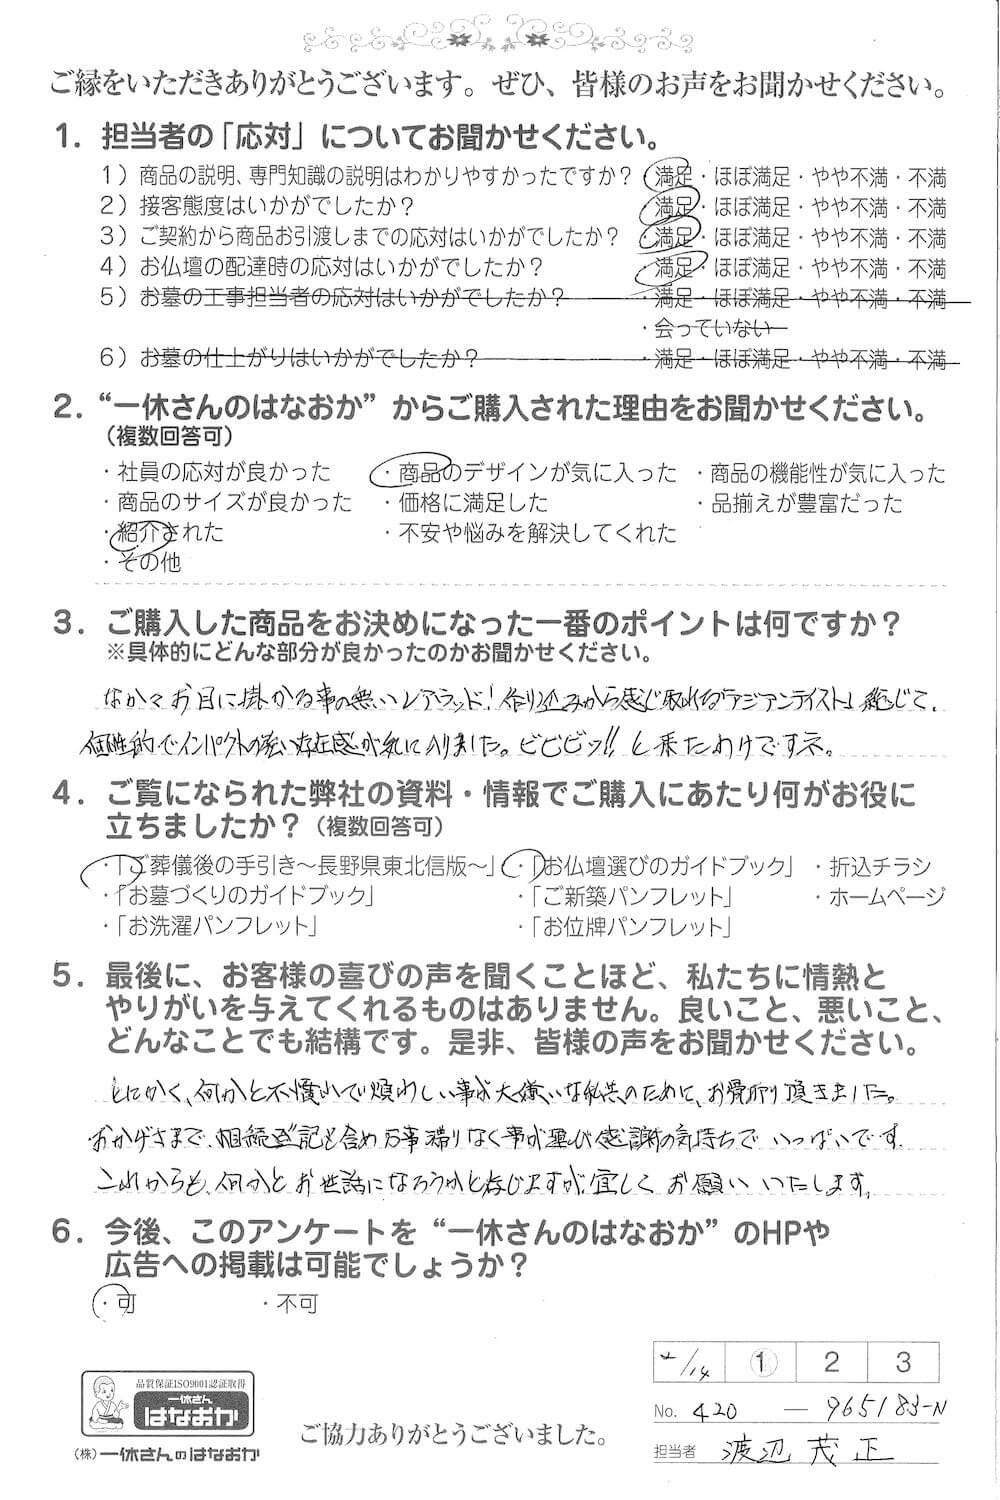 ご縁をいただきありがとうございます。ぜひ、皆様のお声をお聞かせください。
1. 担当者の「応対」についてお聞かせください。
1）商品の説明、専門知識の説明はわかりやすかったですか？ ・満足・ほぼ満足・やや不満・不満
2）接客態度はいかがでしたか？ ・満足・ほぼ満足・やや不満・不満
3）ご契約から商品お引渡しまでの応対はいかがでしたか？ ・満足・ほぼ満足・やや不満・不満
4）お仏壇の配達時の応対はいかがでしたか？ ・満足・ほぼ満足・やや不満・不満
5）お墓の工事担当者の応対はいかがでしたか？ ・満足・ほぼ満足・やや不満・不満
・会っていない
6）お墓の仕上がりはいかがでしたか？ ・満足・ほぼ満足・やや不満・不満
2. “一休さんのはなおか” からご購入された理由をお聞かせください。
（複数回答可）
・社員の応対が良かった ・商品のデザインが気に入った ・商品の機能性が気に入った
・商品のサイズが良かった ・価格に満足した ・品揃えが豊富だった
・紹介された ・不安や悩みを解決してくれた
・その他
3. ご購入した商品をお決めになった一番のポイントは何ですか？
※具体的にどんな部分が良かったのかお聞かせください。
なかなかお目に掛かる事の無いレアウッド！作り込みから感じ取れる「アジアンテイスト」総じて、
個性的でインパクトの強い存在感が気に入りました。ビビビッ!!と来たわけですネ。
4. ご覧になられた弊社の資料・情報でご購入にあたり何がお役に
立ちましたか？（複数回答可）
・「ご葬儀後の手引き～長野県東北信版～」 ・「お仏壇選びのガイドブック」 ・折込チラシ
・「お墓づくりのガイドブック」 ・「ご新築パンフレット」 ・ホームページ
・「お洗濯パンフレット」 ・「お位牌パンフレット」
5. 最後に、お客様の喜びの声を聞くことほど、私たちに情熱と
やりがいを与えてくれるものはありません。良いこと、悪いこと、
どんなことでも結構です。是非、皆様の声をお聞かせください。
とにかく、何かと不慣れで煩わしい事が大嫌いな私共のために、お骨折り頂きました。
おかげさまで、相続登記も含め万事滞りなく事が運び感謝の気持ちでいっぱいです。
これからも、何かとお世話になろうかと存じますが、宜しくお願いいたします。
6. 今後、このアンケートを “一休さんのはなおか” のHPや
広告への掲載は可能でしょうか？
・可 ・不可
/14 ① 2 3
No. 420 — 965183-N
担当者 渡辺 茂正
品質保証ISO9001認証取得
一休さん
はなおか
（株）一休さんのはなおか
ご協力ありがとうございました。